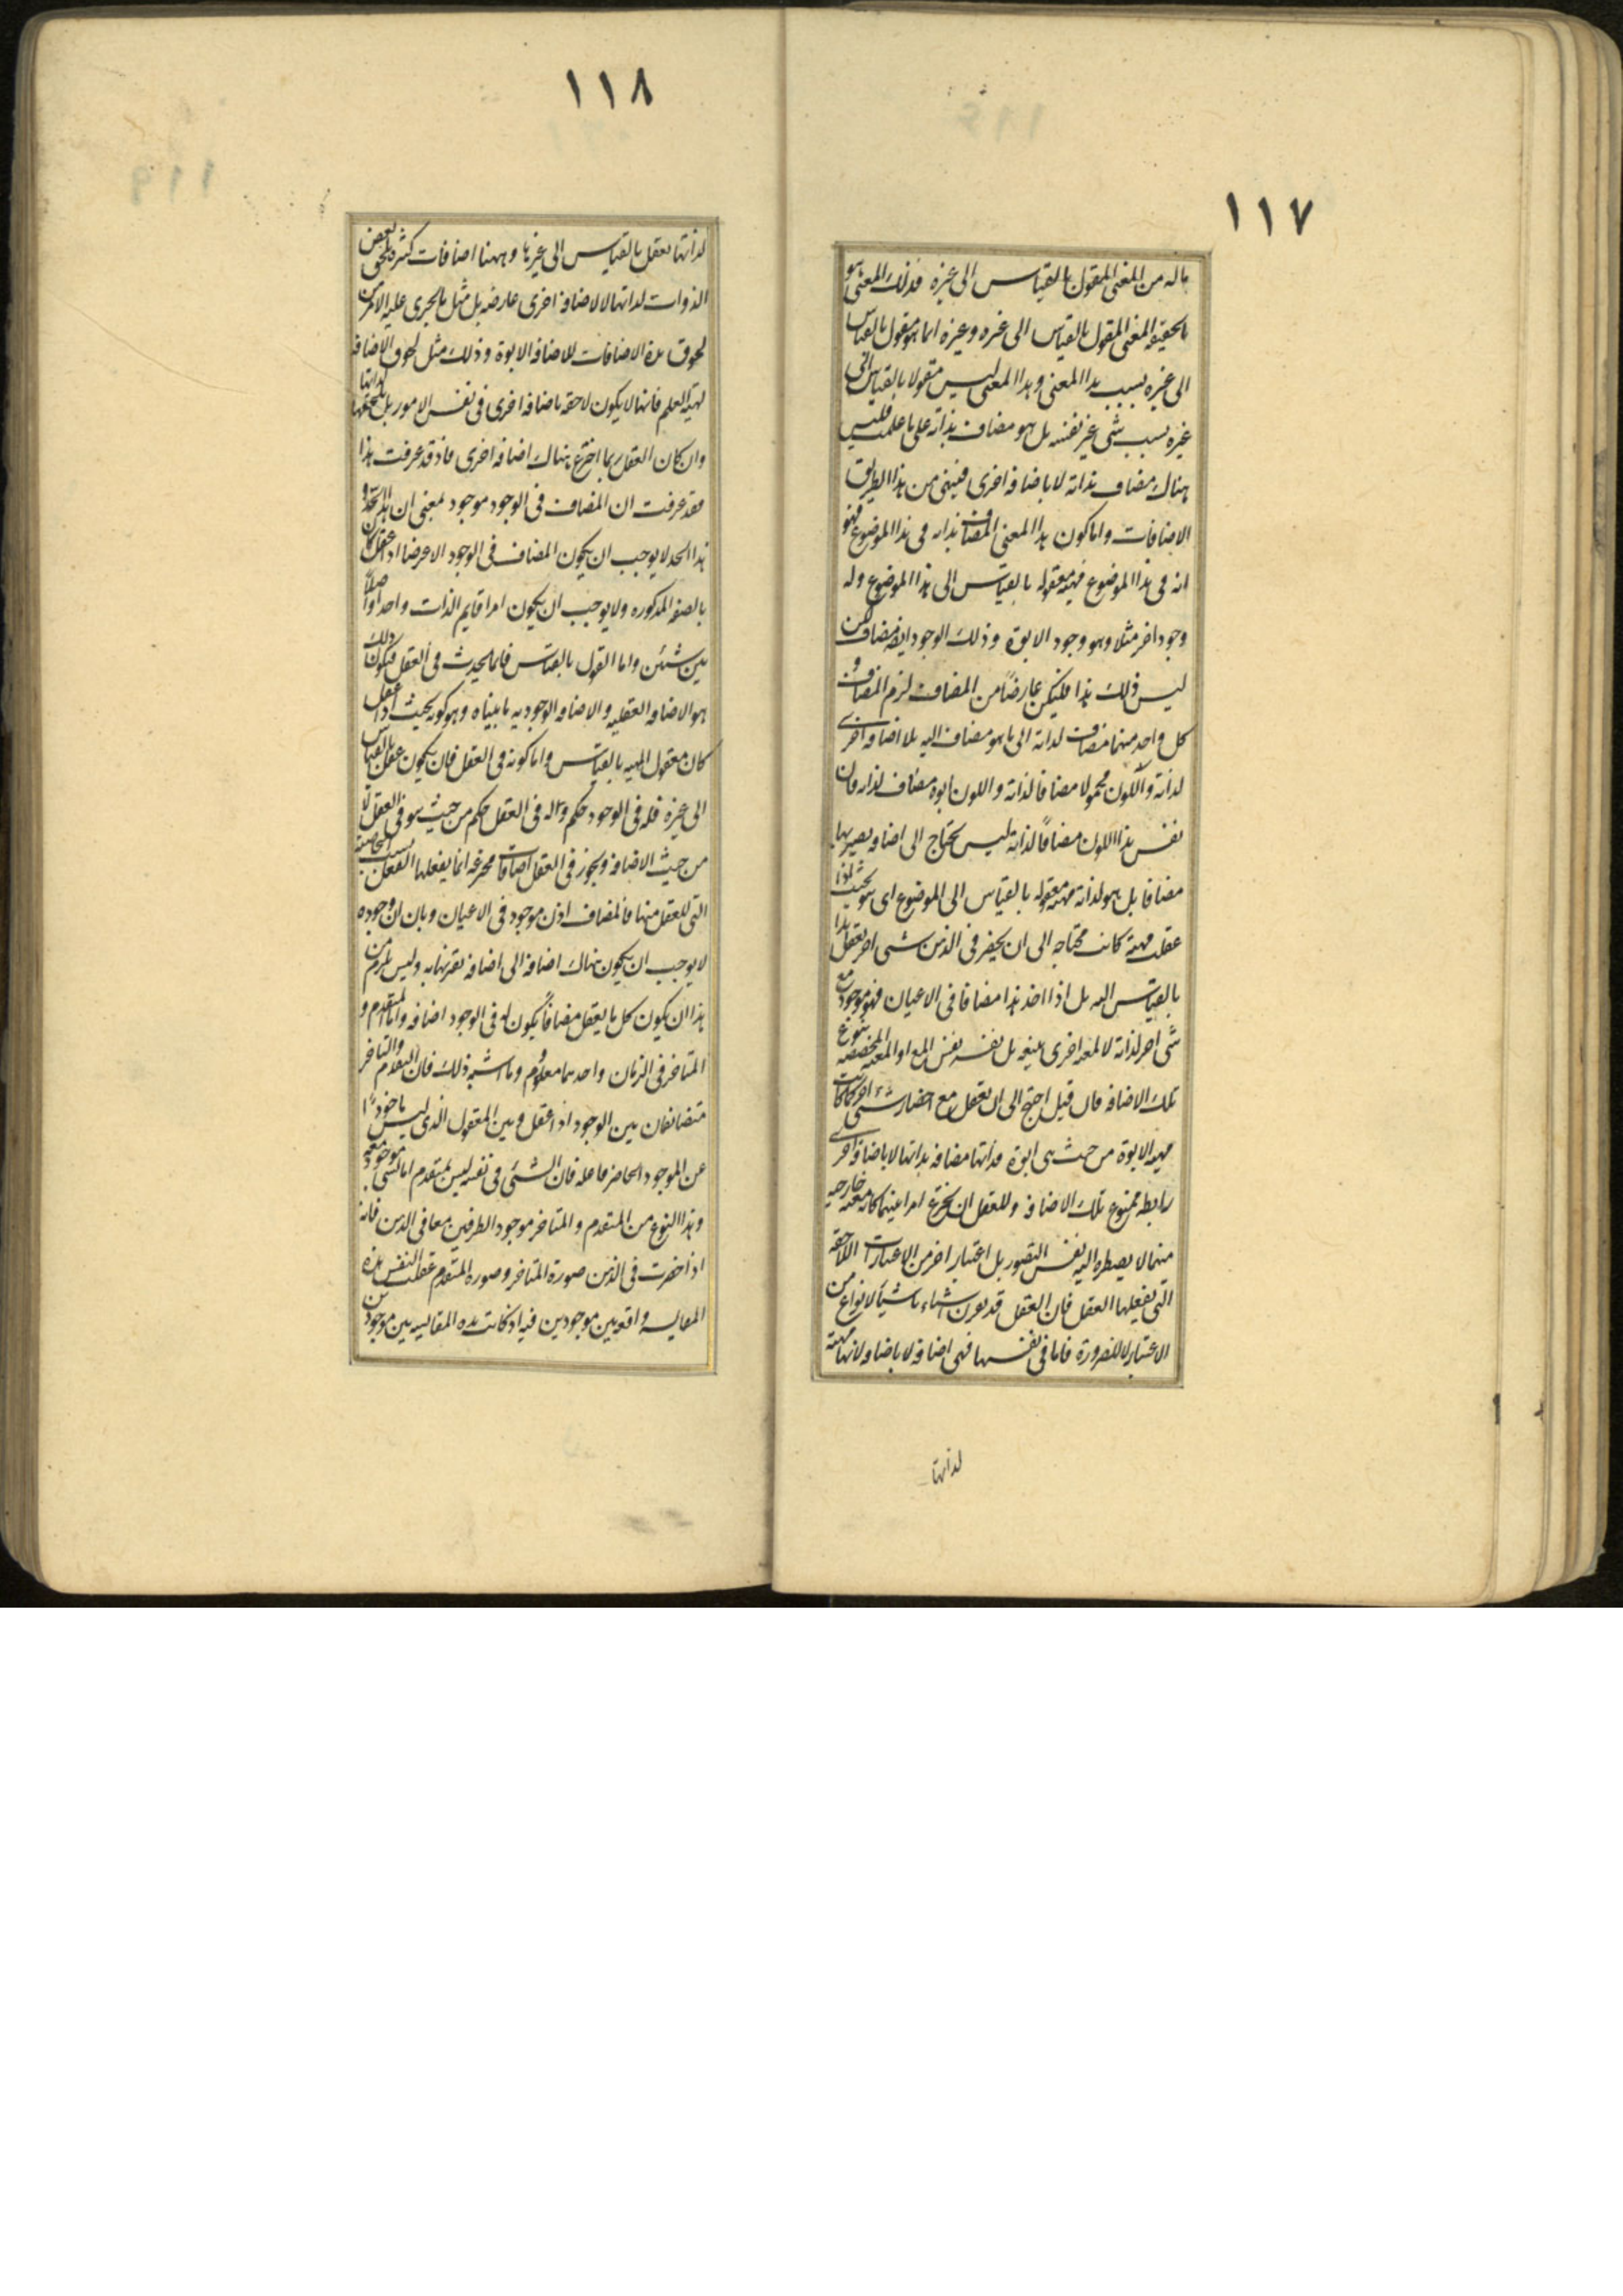 ١١٧
ما له من المعنى المقول بالقياس الى غيره فذلك المعنى هو
بالحقيقة المعنى المقول بالقياس الى غيره وغيره انما هو مقول بالقياس
الى غيره بسبب هذا المعنى وهذا المعنى ليس مقولا بالقياس الى
غيره بسبب شى غير نفسه بل هو مضاف بذاته على ما علمت فليس
هناك مضاف بذاته لا باضافه اخرى فينتهى من هذا الطريق
الاضافات واما كون هذا المعنى المضاف بذاته فى هذا الموضوع فهو
انه فى هذا الموضوع مهيته معقوله بالقياس الى هذا الموضوع وله
وجود اخر مثلا وهو وجود الابوة وذلك الوجود ايضا مضاف لكن
ليس ذلك هذا فليكن عارضاً من المضاف لزم المضاف و
كل واحد منهما مضاف لذاته الى ما هو مضاف اليه بلا اضافه اخرى
لذاته والكون محمولا مضافا لذاته والكون ابوه مضاف لذاته فان
نفس هذا الكون مضافاً لذاته ليس يحتاج الى اضافه يصير بها
مضافا بل هو لذاته مهيته معقوله بالقياس الى الموضوع اى هو بحيث اذا
عقلت مهيته كانت محتاجه الى ان يحضر فى الذهن شى اخر يعقل هذا
بالقياس اليه بل اذا اخذ هذا مضافا فى الاعيان فهو موجود مع
شى اخر لذاته لا لمعيه اخرى يتبعه بل نفسه نفس المع او المعيه المخصصه بنوع
تلك الاضافه فان قيل احتيج الى ان يعقل مع احضار شى اخر كما كانت
مهيه الابوة من حيث هى ابوة فذاتها مضافه بذاتها لا باضافه اخرى
رابطه بنوع تلك الاضافه وللعقل ان يخترع امرا بينهما كانه معيه خارجه
منهما لا يضطره اليه نفس التصور بل اعتبار اخر من الاعتبارات اللاحقه
التى يفعلها العقل فان العقل قد يقرن اشياء باشيا لانواع من
الاعتبار لا للضرورة فاما فى نفسها فهى اضافه لا باضافه لانها مهية
لذاتها
١١٨
لذاتها تعقل بالقياس الى غيرها وههنا اضافات كثيره تلحق بعض
الذوات لذاتها لا لاضافه اخرى عارضه بل مثل ما يجرى عليه الامر من
لحوق هذه الاضافات للاضافه الابوة وذلك مثل لحوق الاضافه
لهيئه العلم فانها لا يكون لاحقه باضافه اخرى فى نفس الامور بل تلحقها لذاتها
وان كان العقل ربما اخترع هناك اضافه اخرى فاذ قد عرفت هذا
فقد عرفت ان المضاف فى الوجود موجود بمعنى ان له هذا الحد و
هذا الحد لا يوجب ان يكون المضاف فى الوجود الا عرضا اذا عقل كان
بالصفه المذكوره ولا يوجب ان يكون امرا قايم الذات واحدا واصلا
بين شيئين واما القول بالقياس فانما يحدث فى العقل فيكون ذلك
هو الاضافه العقليه والاضافه الوجوديه ما بيناه وهو كونه بحيث اذا عقل
كان معقول المهيه بالقياس واما كونه فى العقل فان يكون عقل بالقياس
الى غيره فله فى الوجود حكم وله فى العقل حكم من حيث هو فى العقل لا
من حيث الاضافه ويجوز فى العقل اضافات مخترعه انما يفعلها العقل بسبب الخاصية
التى للعقل منها فالمضاف اذن موجود فى الاعيان وبان ان وجوده
لا يوجب ان يكون هناك اضافه الى اضافه بغير نهايه وليس يلزم من
هذا ان يكون كل ما يعقل مضافاً يكون له فى الوجود اضافه واما المتقدم و
المتاخر فى الزمان واحدهما معدوم وما اشبه ذلك فان التقدم والتاخر
متضايفان بين الوجود اذا عقل وبين المعقول الذى ليس ماخوذا
عن الموجود الحاضر فاعلم فان الشئ فى نفسه ليس بمتقدم الا بشى موجود معه
وهذا النوع من المتقدم والمتاخر موجود الطرفين معا فى الذهن فانه
اذا حضرت فى الذهن صورة المتاخر وصوره المتقدم عقلت النفس هذه
المقايسه واقعه بين موجودين فيه اذ كانت هذه المقايسه بين موجودين